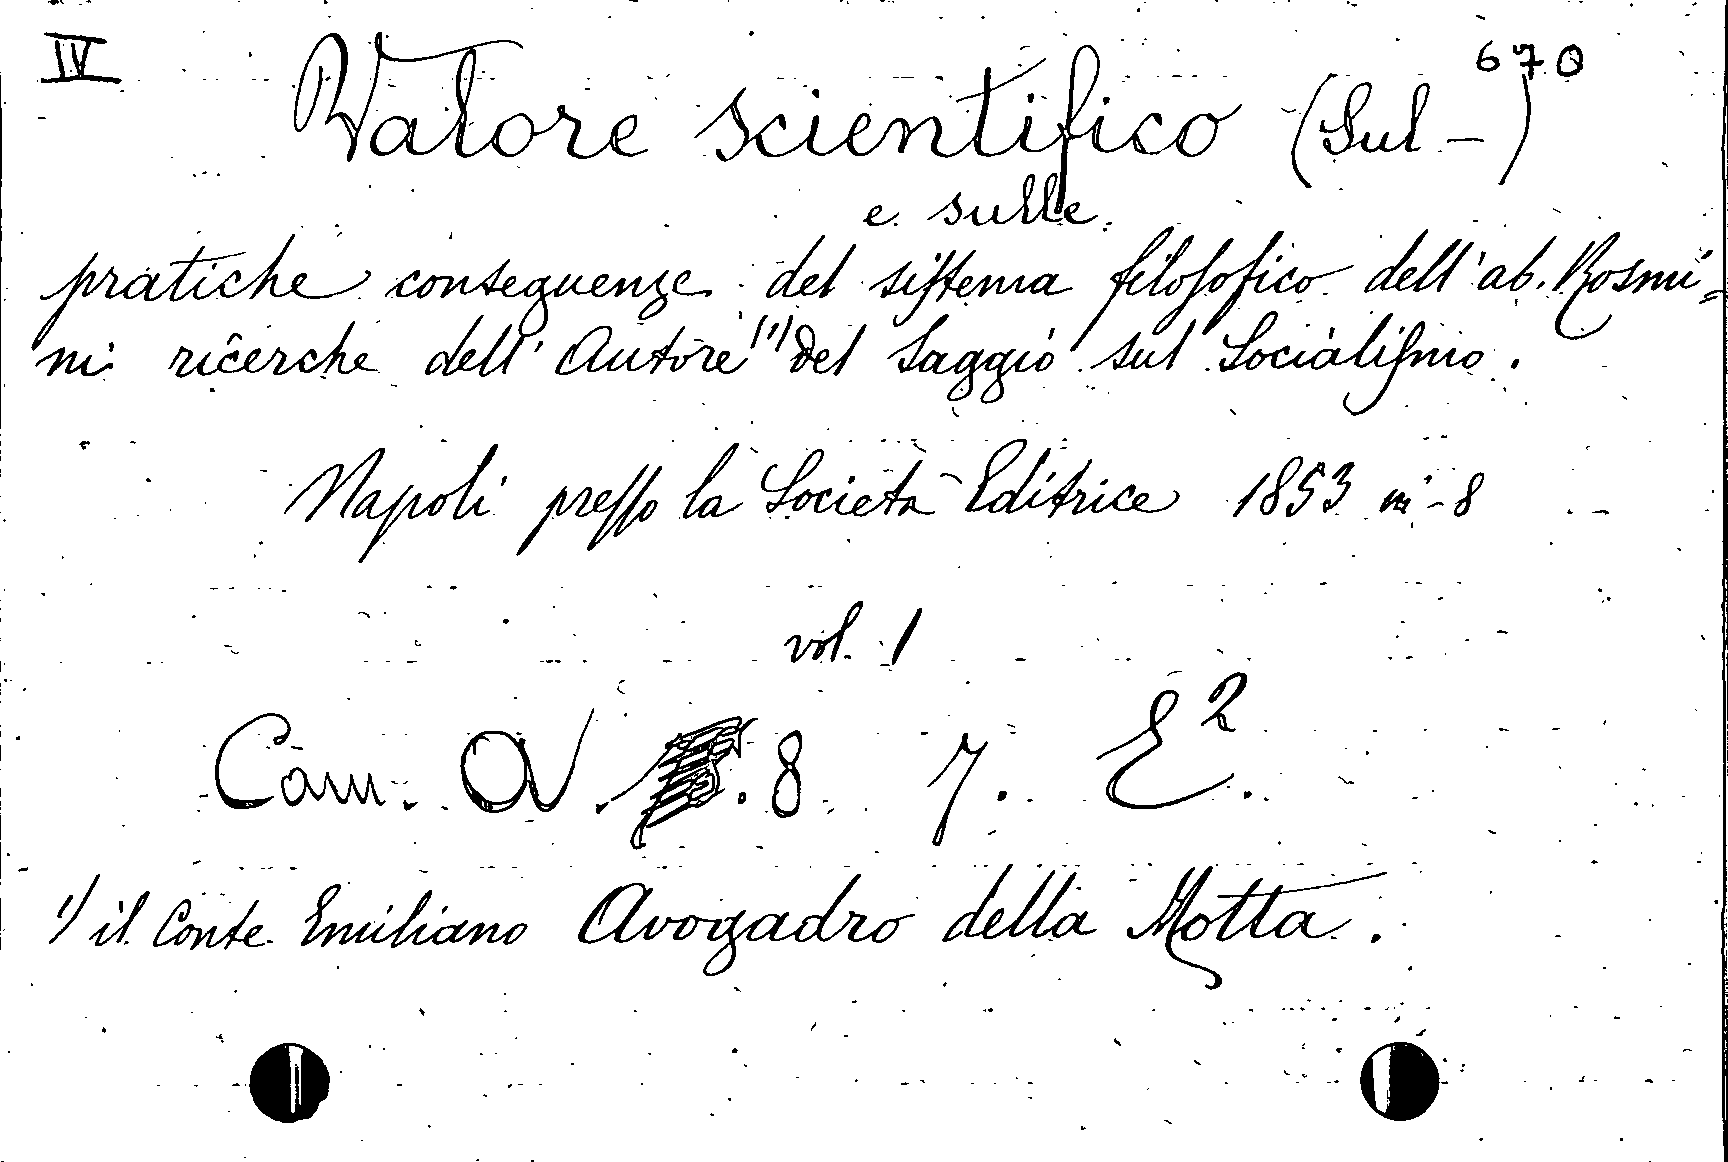 IV
670
Valore scientifico (Sul -)
e sulle
pratiche conseguenze del sistema filosofico dell'ab. Rosmi=
ni ricerche dell'Autore (1) del Saggio sul Socialismo.
Napoli presso la Società Editrice 1853 in-8
vol. 1
Cam. A. 8 7. E2.
1) il Conte Emiliano Avogadro della Motta.